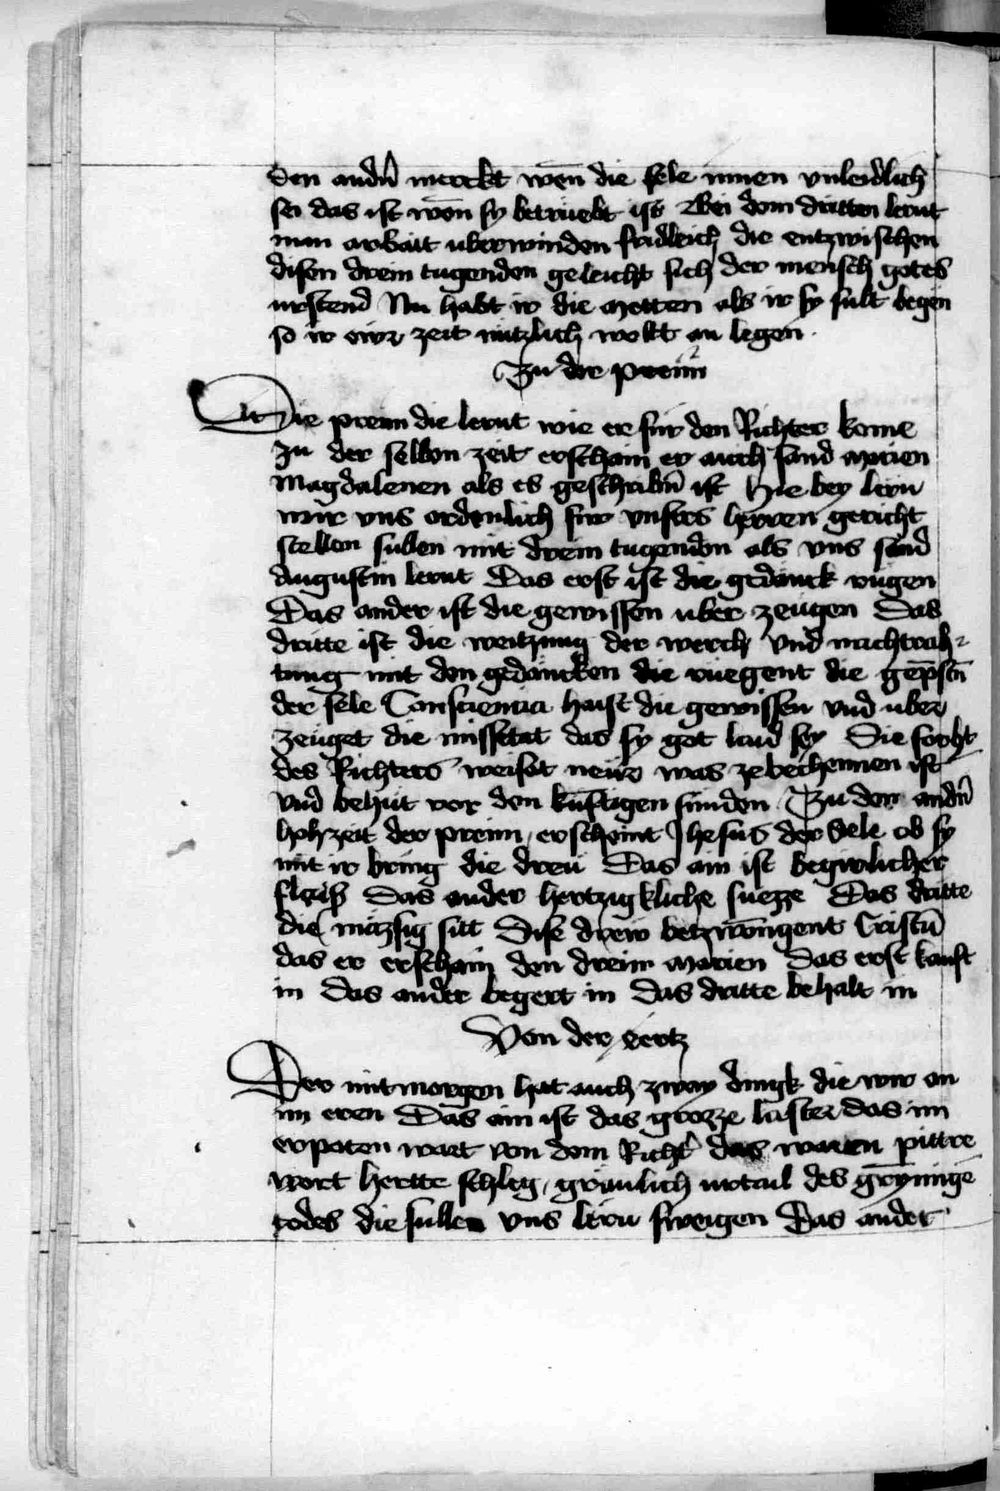 den andn̄ merckt wen̄ die sele innen vnleidlich
sei das ist wen̄ sy betruebt ist Bei dem dritten lernt
man arbait uberwinden fridleich die entzwischen
disen drein tugenden geleicht sich der mensch gotes
urstend Nu habt ir die metten als ir sy sült begen
so ir ewr zeit nützlich welt an legen
Zu der preim
Die preim die lernt wie er für den Richter kome
zu der selben zeit erscham er auch sand marien
Magdalenen als es geschribn̄ ist Hie bey lern
wir vns ordenlich für vnsers herren gericht
stellen sullen mit drein tugenden als vns sand
Augustin lernt Das erst ist die gedanck rügen
Das ander ist die gewissen uber zeugen Das
dritte ist die weitzung der werch vnd nachtrah-
tung mit den gedancken die rüegent die
der sele Consciencia haist die gewissen vnd uber
zeuget die missetat das sy got laid sey Die forcht
des Richters weiset newr was ze bechennen ist
vnd behüt vor den künftigen sünden Zu der andn̄
hohzeit der preim erscheint Jhesus der Sele ob sy
mit ir bring die dreü Das ain ist begirlicher
fleiss Das ander hertzigkliche suezze Das dritte
die mäzsig sitt Dise drew betzwengent Cristū
das er erscham den drein marien Das erst kauft
in das ander begert in das dritte behalt in
Von der tertz
Der mitmorgen hat auch zway dingk die wir an
im eren Das ain ist das grozze laster das im
erpoten wart von dem Richt̄ das waren pittre
wort hertte schleg gräulich urtail des grymmige
todes die sullen vns lern sweigen Das ander